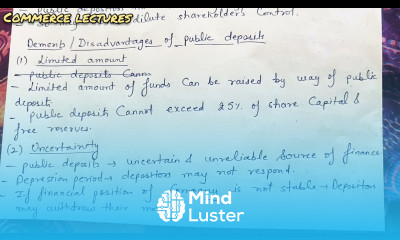 COMMERCE LECTURES
- public deposit
dilute shareholder's control.
Demerits / Disadvantages of public deposits
(1) Limited amount
- public deposits Cann
- Limited amount of funds Can be raised by way of public
deposit.
- public deposits Cannot exceed 25% of share Capital &
free reserves.
(2) Uncertainity
- public deposits → uncertain & unreliable source of finance
- Depression period → depositors may not respond.
- If financial position of Company is not stable → Depositors
may withdraw their
Mind
Luster